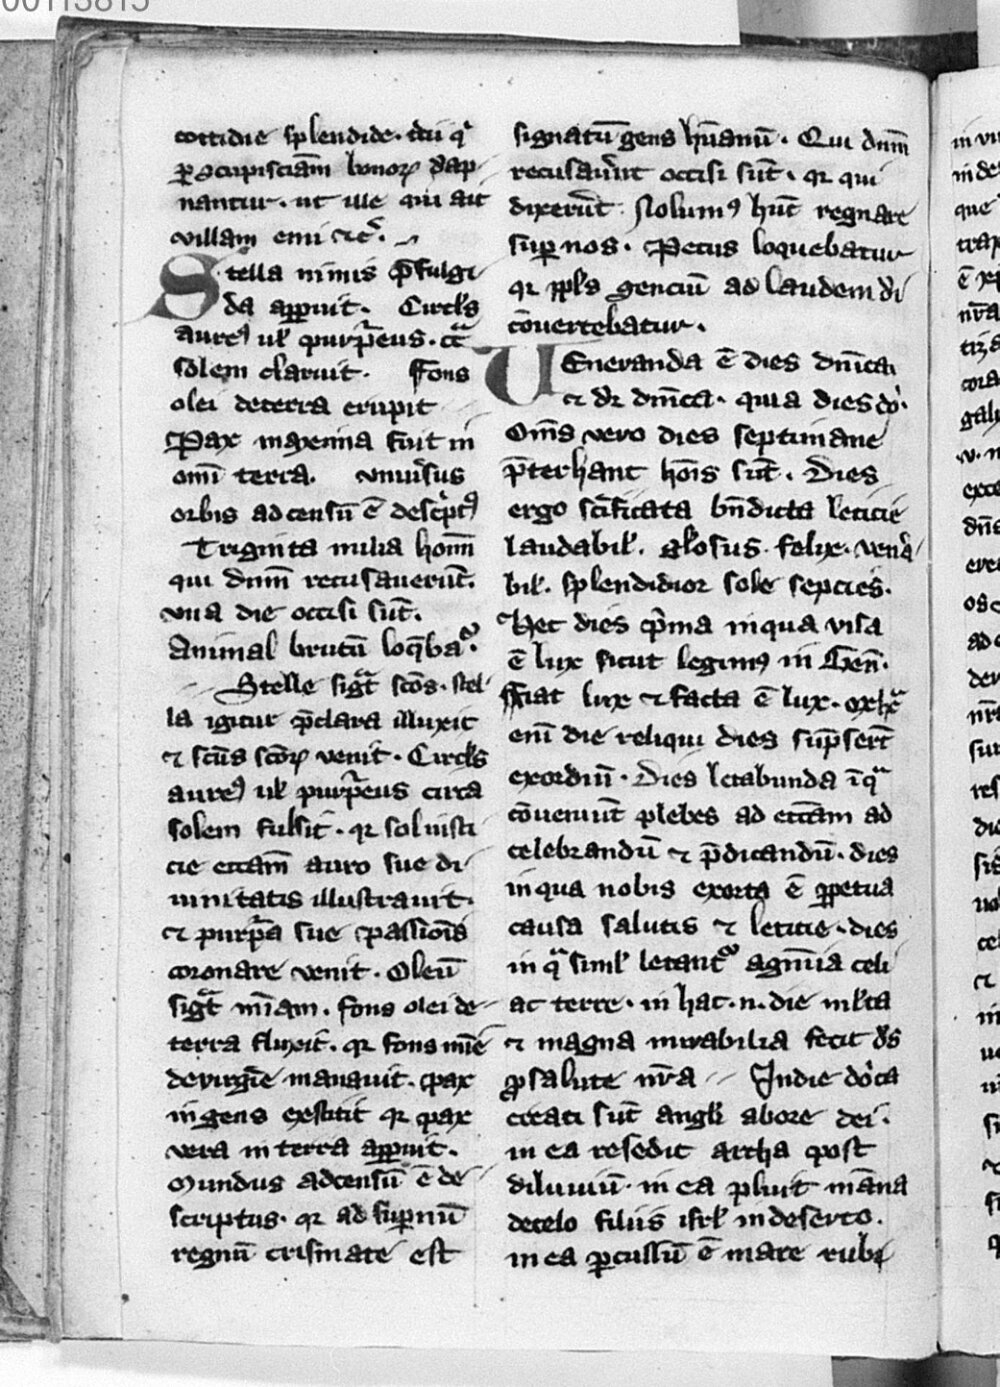 cottidie splendide. dñ qͥ
ꝑ ɔcupisciam̄ bonoꝝ dāp
nantur. ut ille qui ait
villam emi ⁊cͣ.
Stella nimis p̄fulgi
da apꝑuit. Circls
aureꝰ ul̓ purpͥeus. cͣ
solem claruit. Fons
olei deterra erupit
Pax maxima fuit in
omī terra. vniuͥsus
orbis adcensū ē descͥptꝰ
Triginta milia homī
qui dnm̄ recusauerūt.
vna die occisi sūt.
Animal brutū loq̄bať.
Stelle sigͣt scōs. stel
la igitur p̄clara illuxit
⁊ scūs scōꝝ venit. Circls
aureꝰ ul̓ purpͥeus circa
solem fulsit. qꝛ sol iusti
cie eccam̄ auro sue di
uinitatis illustrauit.
⁊ purpͣa sue passiōis
coronare venit. Oleū
sigͣt mīam. fons olei de
terra fluxit. qꝛ fons mīe
devirgīe manauit. pax
ingens exstitit qꝛ pax
vera in terra apꝑuit.
Mundus adcensū ē de
scriptus. qꝛ ad suꝑnū
regnū crismate est
signatū gens hūanū. Qui dnm̄
recusauͥūt occisi sūt. qꝛ qui
dixerūt. Nolumꝰ hūc regnare
suꝑ nos. Pecus loquebatur
qꝛ ppl̓s genciū ad laudem di
cōuertebatur.
Ueneranda ē dies dnīca
⁊ dr̄ dnīca. quia dies dō.
Om̄s vero dies septimane
p̄terhanc hoīs sūt. Dies
ergo scīficata bn̄dicta leticie
laudabil̓. gl̓osus. felix. venͣa
bil̓. splendidior sole sepcies.
Hec dies pͥma inqua visa
ē lux sicut legimꝰ in Gen̄.
Fiat lux ⁊ facta ē lux. ex hͣ
enī die reliqui dies sūpsert̄
exordiū. Dies letabunda ī qͣ
cōueniūt plebes ad eccam̄ ad
celebrandū ⁊ p̄dicandū. dies
inqua nobis exorta ē ꝑpetua
causa salutis ⁊ leticie. dies
in qͣ simil̓ letantͬ agmīa celi
ac terre. in hac .n. die ml̓ta
⁊ magna mirabilia fecit ds̄
ꝓ salute nr̄a Indie dōica
creati sūt angl̓i abore dei.
in ea resedit archa post
diluuiū. in ea pluit māna
decelo filiis isrl̓ indeserto.
in ea ꝑcussū ē mare rubͥ